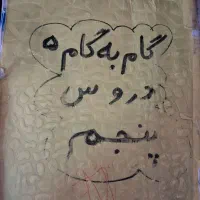 گام به گام ۵
دروس
پنجم